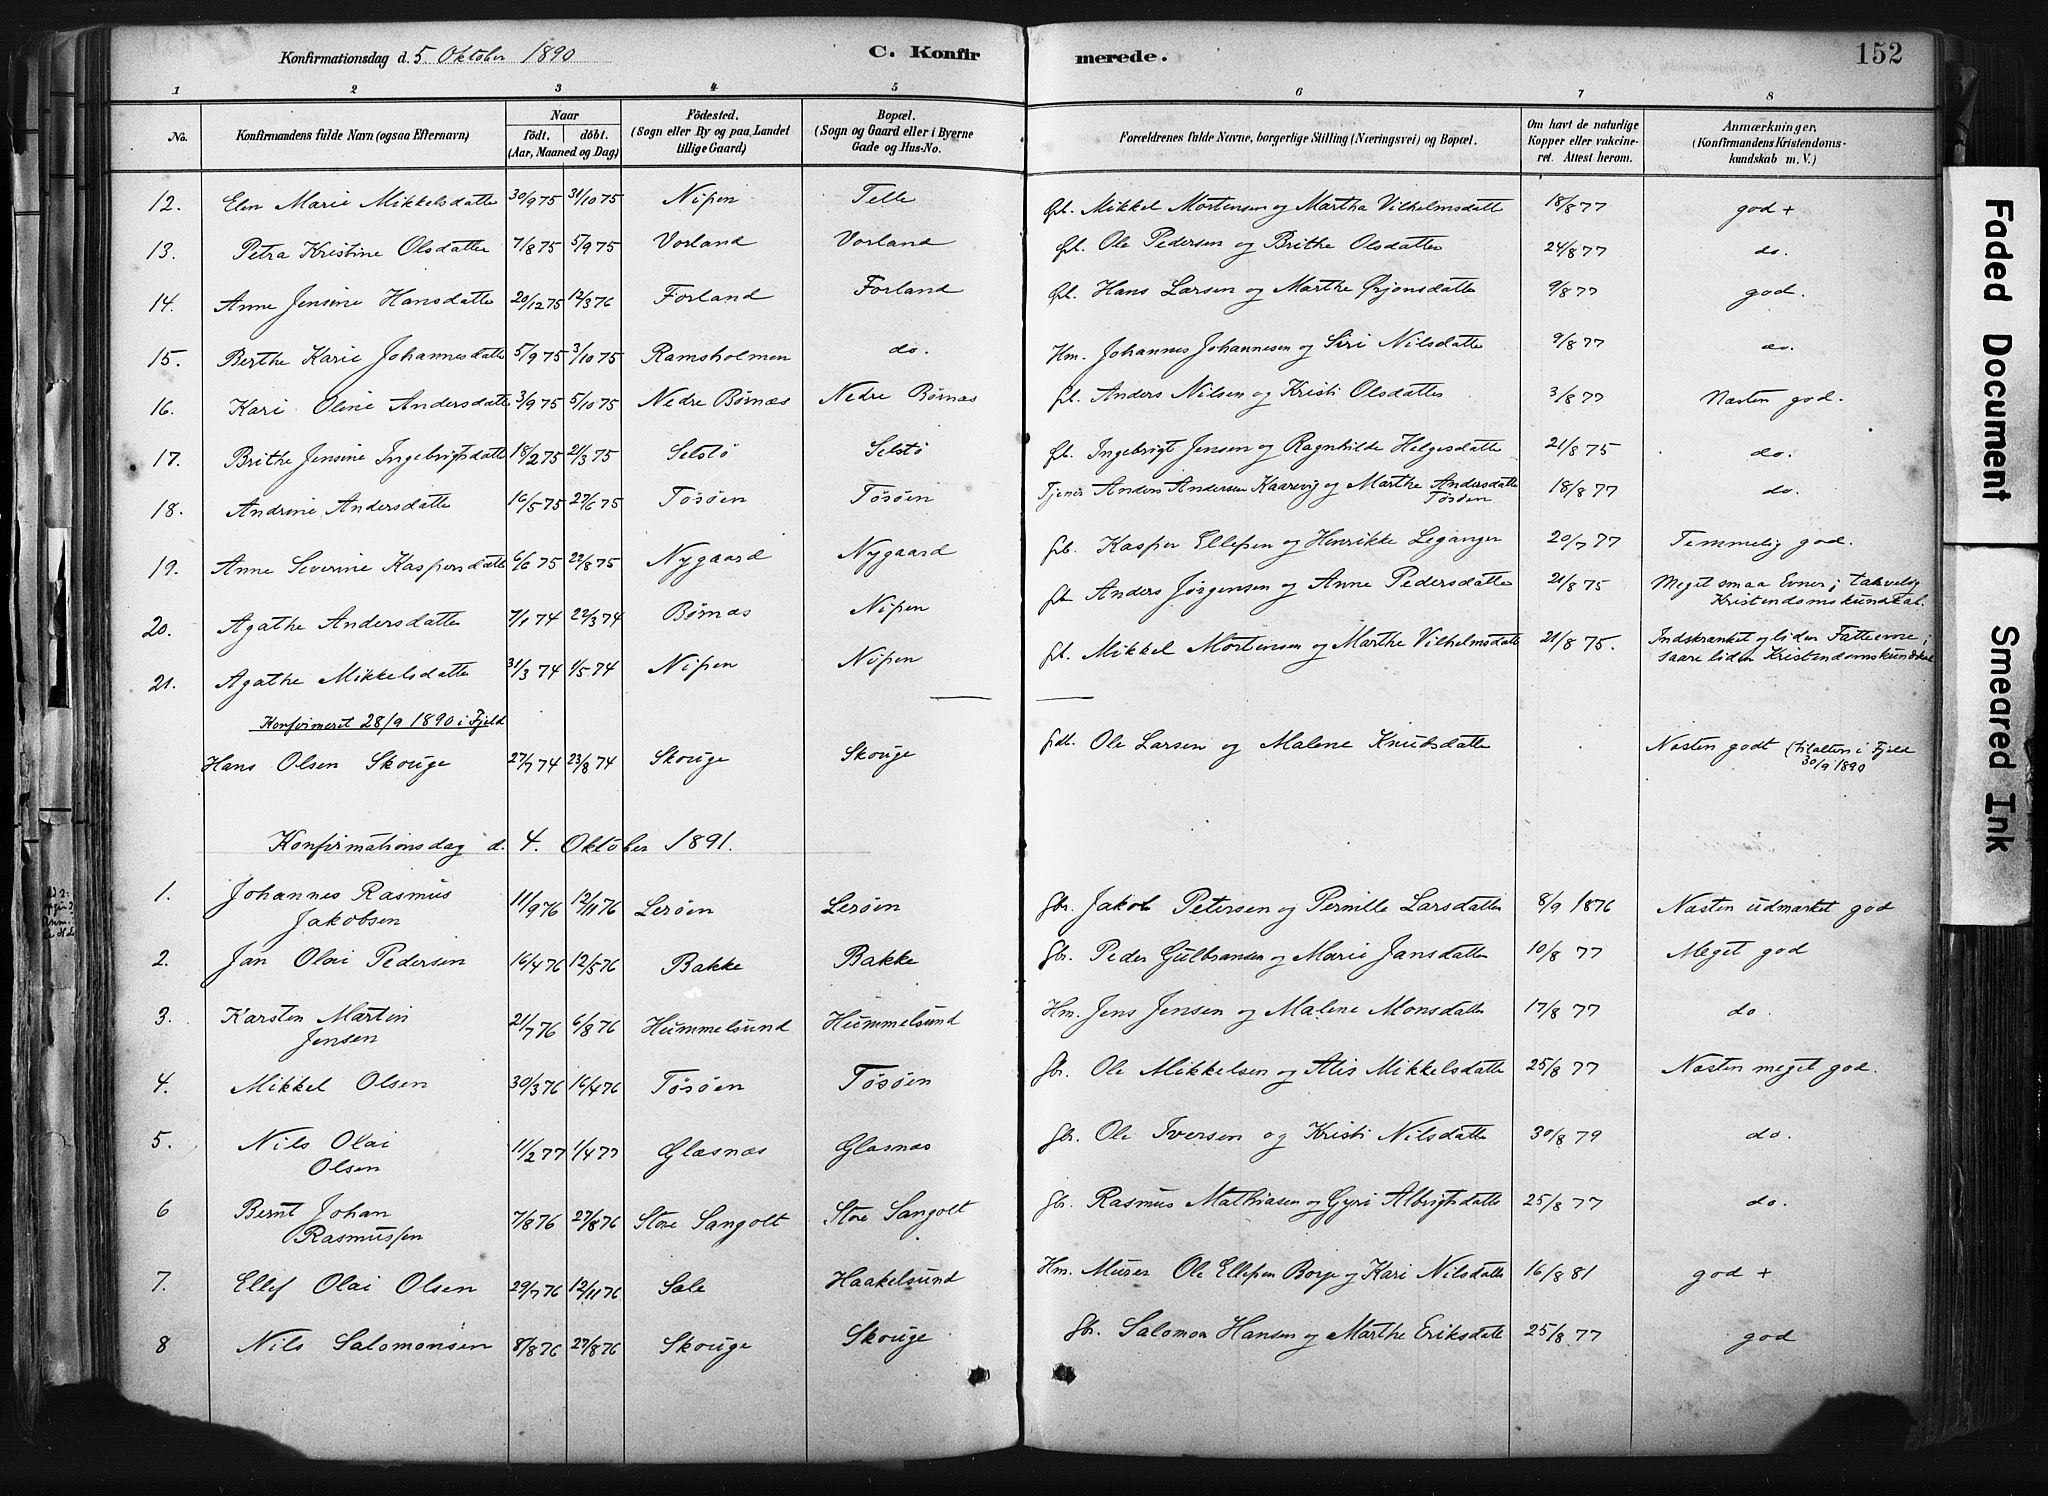 Konfirmationsdag d. 5 Oktober 1890 C. Konfirmerede. 152
1 2 3 4 5 6 7 8
No. Konfirmandens fulde Navn (ogsaa Efternavn) Naar født. døbt. (Aar, Maaned og Dag) Fødested. (Sogn eller By og paa Landet tillige Gaard) Bopæl. (Sogn og Gaard eller i Byerne Gade og Hus-No. Forældrenes fulde Navne, borgerlige Stilling (Næringsvei) og Bopæl. Om havt de naturlige Kopper eller vakcineret. Attest herom. Anmærkninger. (Konfirmandens Kristendomskundskab m. V.)
12. Elen Marie Mikkelsdatter 30/9 75 31/10 75 Nipen Telle Gbr. Mikkel Mortensen og Martha Vilhelmsdatt 18/8 77 god +
13. Petra Kristine Olsdatter 7/8 75 5/9 75 Vorland Vorland Gbr. Ole Pedersen og Brithe Olsdatter 24/8 77 do.
14. Anne Jensine Hansdatter 20/12 75 12/3 76 Forland Forland Gbr. Hans Larsen og Marthe Ørjansdatter 9/8 77 god.
15. Berthe Karie Johannesdatter 5/9 75 3/10 75 Ramsholmen do. Hm. Johannes Johannesen og Siri Nilsdatter 9/8 77 do.
16. Kari Oline Andersdatter 3/9 75 5/10 75 Nedre Børnæs Nedre Børnæs Anders Nilsen og Kristi Olsdatter 3/8 77 Næsten god.
17. Brithe Jensine Ingebrigtsdatter 18/2 75 21/3 75 Selstö Selstö Ingebrigt Jensen og Ragnhilde Helgesdatter 21/8 75 do.
18. Andrine Andersdatter 16/5 75 27/6 75 Tösöen Tösöen Tjener Anders Andersen Kaarevig og Marthe Andersdatter Tösöen 18/8 77 do.
19. Anne Severine Kaspersdatter 6/6 75 22/8 75 Nygaard Nygaard Gbr. Kasper Ellefsen og Henrikke Leganger 20/7 77 Temmelig god.
20. Agathe Andersdatter 7/1 74 22/3 74 Børnæs Nipen Anders Jørgensen og Anne Pedersdatter 21/8 75 Meget smaa Evner; takvelig Kristendomskundskab.
21. Agathe Mikkelsdatter 31/3 74 1/5 74 Nipen Nipen Mikkel Mortensen og Marthe Vilhelmsdatter 21/8 75. Indskrænket og liden Fatteevne; saare liden Kristendomskundskab
Konfirmeret 28/9 1890 i Fjeld
Hans Olsen Skouge 27/7 74 23/8 74 Skouge Skouge Ole Larsen og Malene Knudsdatter Næsten godt (tilalters i Fjeld 30/9 1890
Konfirmationsdag d. 4. Oktober 1891.
1. Johannes Rasmus Jakobsen 11/9 76 12/11 76 Leröen Leröen Gbr. Jakob Petersen og Pernille Larsdatter 8/9 1876 Næsten udmærket god
2. Jan Olai Pedersen 16/4 76 12/5 76 Bakke Bakke Gbr. Peder Gulbransen og Marie Jansdatter 10/8 77 Meget god
3. Karsten Martin Jensen 21/7 76 6/8 76 Hummelsund Hummelsund Hm. Jens Jensen og Malene Monsdatter 17/8 77 do.
4. Mikkel Olsen 30/3 76 16/4 76 Tösöen Tösöen Gbr. Ole Mikkelsen og Alis Mikkelsdatter 25/8 77 Næsten meget god.
5. Nils Olai Olsen 11/2 77 1/4 77 Glæsnæs Glæsnæs Gbr. Ole Iversen og Kristi Nilsdatter 30/8 79 do.
6 Bernt Johan Rasmussen 7/8 76 27/8 76 Store Sangolt Store Sangolt Gbr. Rasmus Mathiasen og Gyri Albrigtsdatter 25/8 77 do.
7. Ellef Olai Olsen 29/7 76 12/11 76 Sæle Haakelsund Hm. Murer Ole Ellefsen Borge og Kari Nilsdatter 16/8 81 god +
8 Nils Salomonsen 8/8 76 27/8 76 Skouge Skouge Gbr. Salomon Hansen og Marthe Eriksdatter 25/8 77 god
Faded Document
Smeared Ink